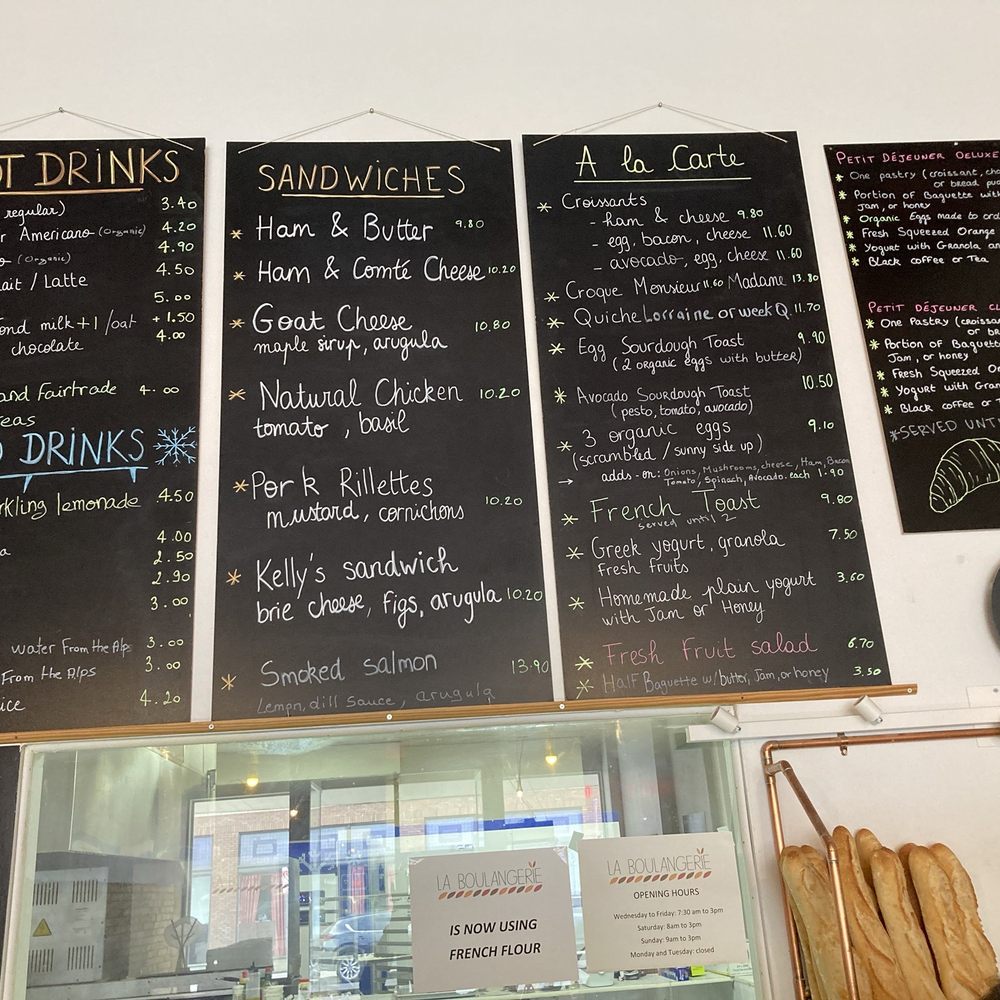 OT DRINKS
regular) 3.40
Americano (Organic) 4.20
(Organic) 4.90
ait / Latte 4.50
5.00
ond milk +1 /oat +1.50
chocolate 4.00
and Fairtrade 4.00
eas
D DRINKS
rkling lemonade 4.50
4.00
a 2.50
2.90
3.00
water From the Alps 3.00
From the Alps 3.00
ice 4.20
SANDWICHES
* Ham & Butter 9.80
* Ham & Comté Cheese 10.20
* Goat Cheese 10.80
maple sirup, arugula
* Natural Chicken 10.20
tomato, basil
* Pork Rillettes
mustard, cornichons 10.20
* Kelly's sandwich
brie cheese, figs, arugula 10.20
* Smoked salmon 13.90
Lemon, dill sauce, arugula
A la Carte
* Croissants
- ham & cheese 9.80
- egg, bacon, cheese 11.60
- avocado, egg, cheese 11.60
* Croque Monsieur 11.60 Madame 13.80
* Quiche Lorraine or week Q. 11.70
* Egg Sourdough Toast 9.90
(2 organic eggs with butter)
* Avocado Sourdough Toast 10.50
(pesto, tomato, avocado)
* 3 organic eggs 9.10
(scrambled / sunny side up)
→ adds-on: Onions, Mushrooms, cheese, Ham, Bacon
Tomato, Spinach, Avocado. each 1.90
* French Toast 9.80
served until 2
* Greek yogurt, granola 7.50
fresh fruits
* Homemade plain yogurt 3.60
with Jam or Honey
* Fresh Fruit salad 6.70
* Half Baguette w/butter, Jam, or honey 3.50
PETIT DÉJEUNER DELUXE
* One pastry (croissant, cho
or bread pu
* Portion of Baguette with
Jam, or honey
* Organic Eggs made to ord
* Fresh Squeezed Orange
* Yogurt with Granola an
* Black coffee or Tea
PETIT DÉJEUNER CL
* One Pastry (croissa
or br
* Portion of Baguette
Jam, or honey
* Fresh Squeezed Or
* Yogurt with Gran
* Black coffee or T
*SERVED UNTI
LA BOULANGERIE
IS NOW USING
FRENCH FLOUR
LA BOULANGERIE
OPENING HOURS
Wednesday to Friday: 7:30 am to 3pm
Saturday: 8am to 3pm
Sunday: 9am to 3pm
Monday and Tuesday: closed